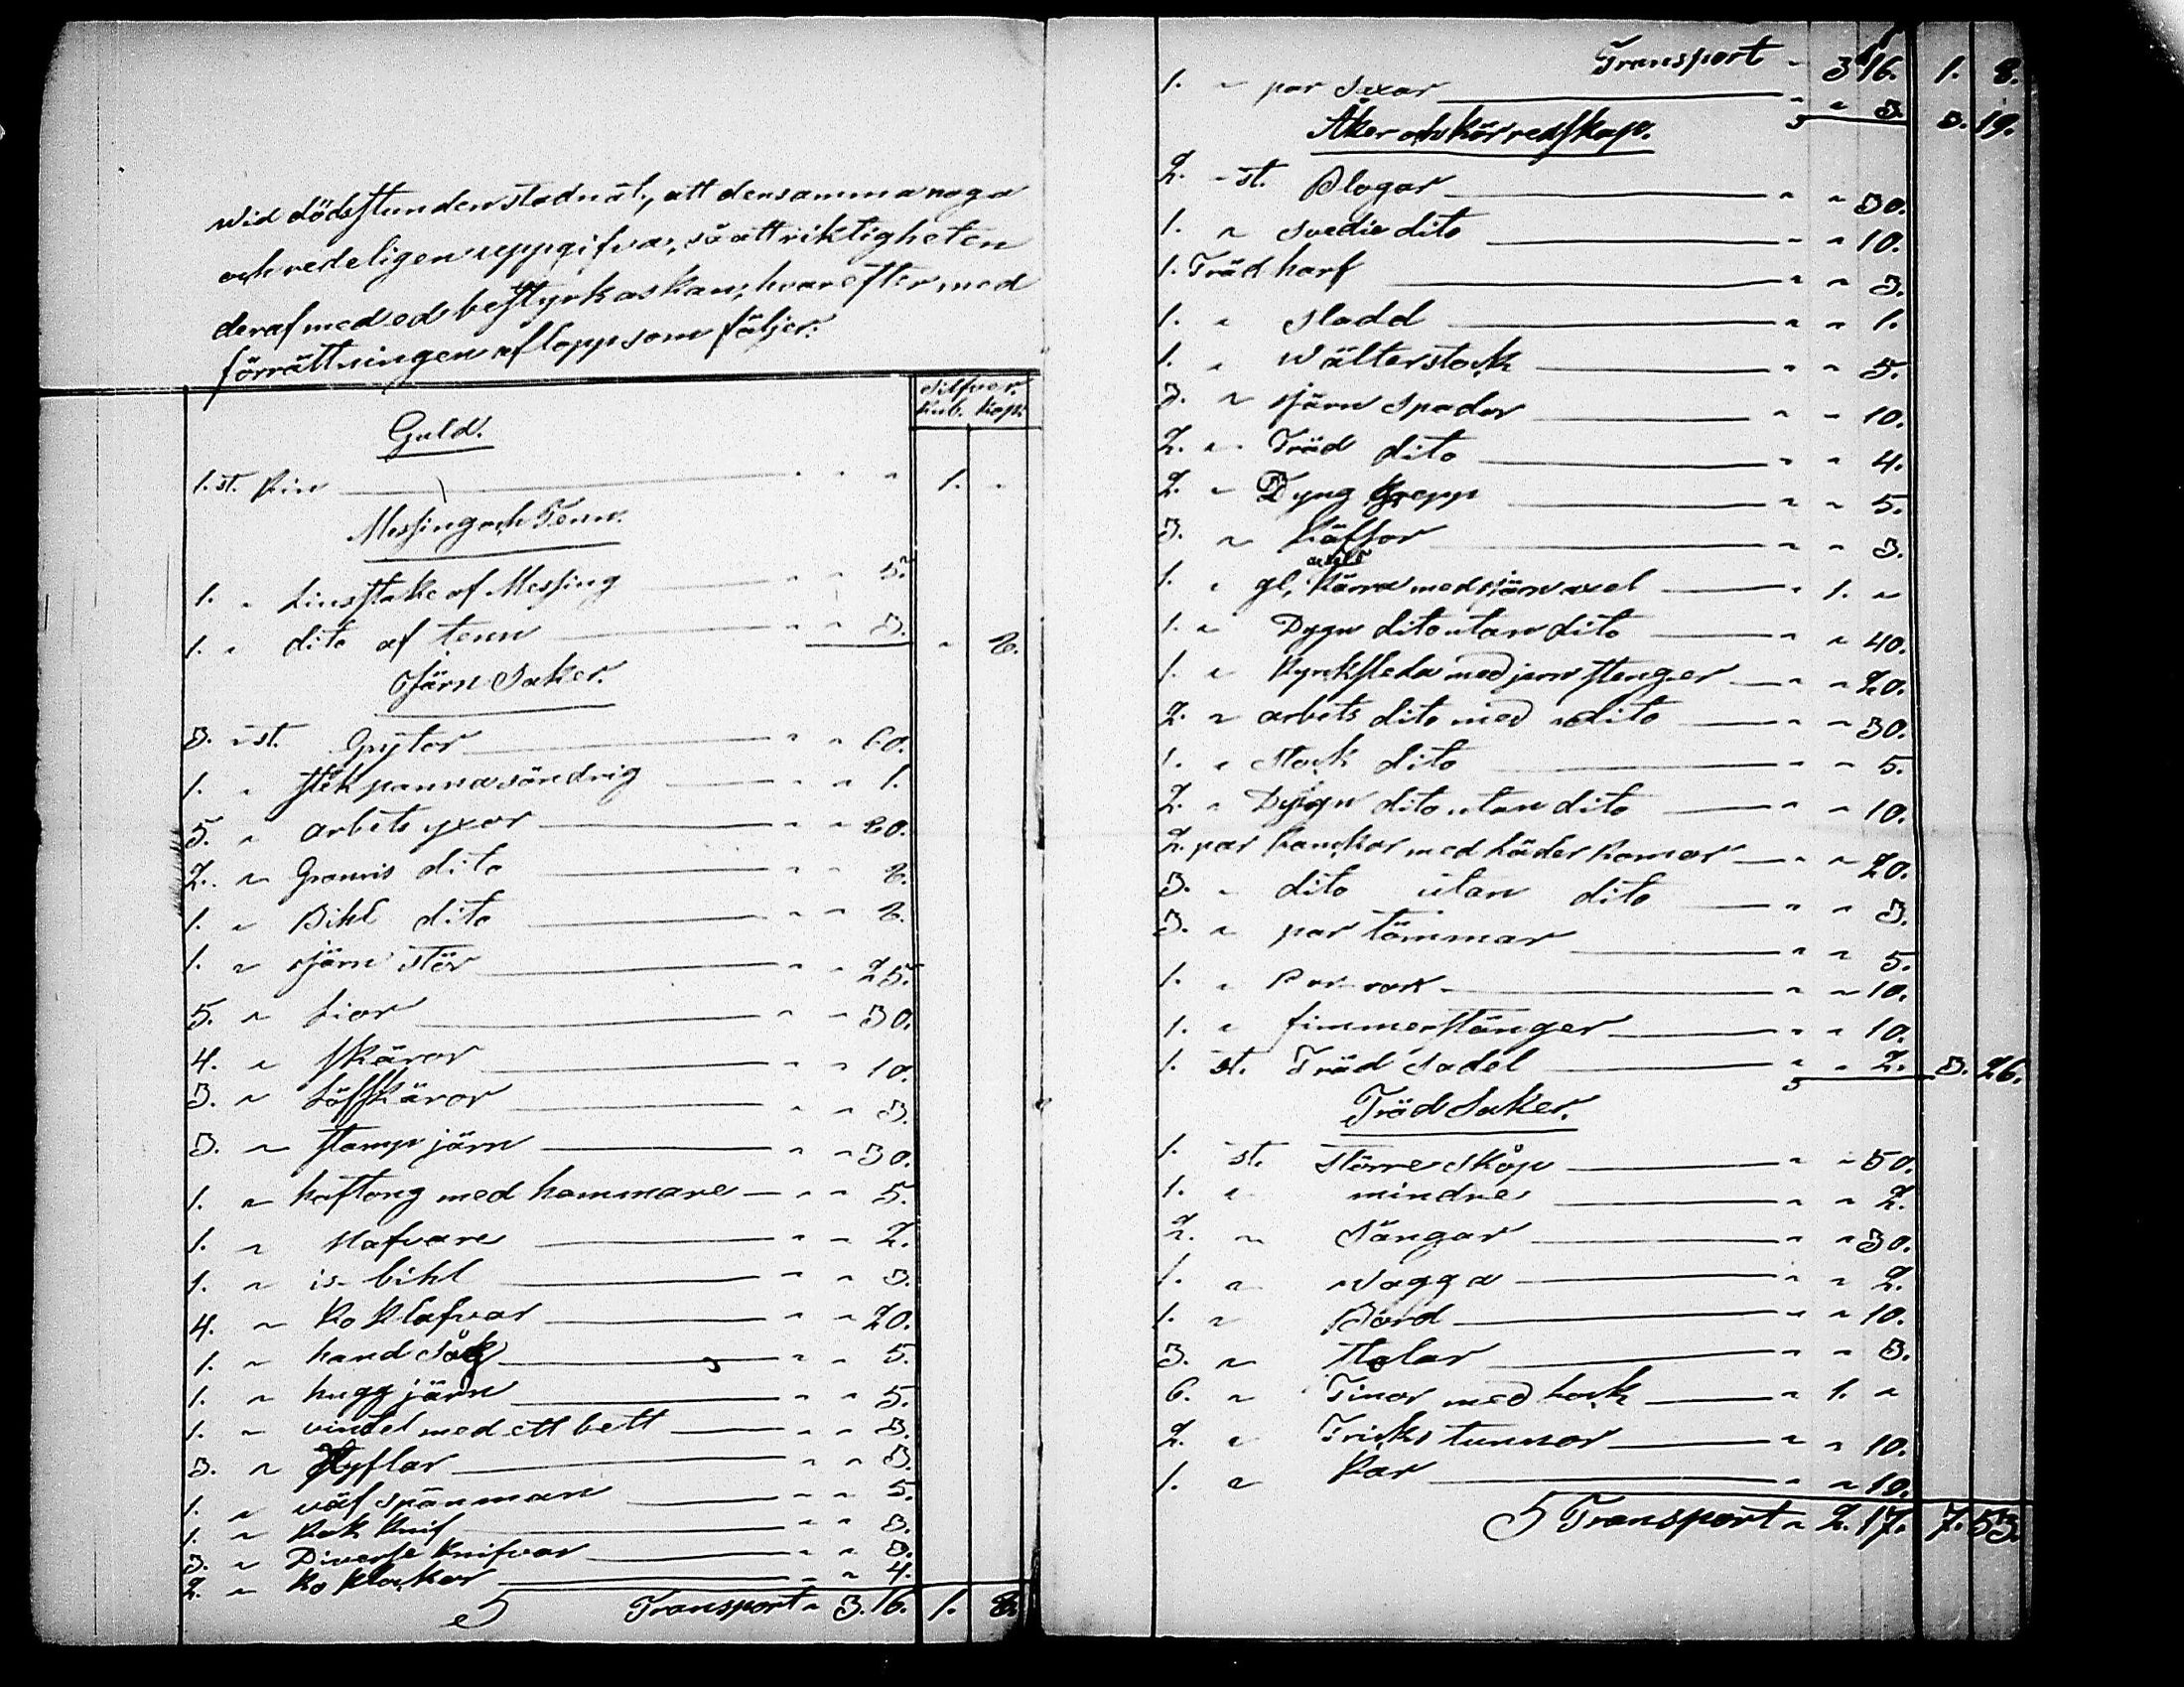 wid dödsstunden stadnat, att densamma noga
och redeligen uppgifva, så att riktigheten
deraf med ed bestyrkas kan, hvarefter med
förrättningen aflopp som följer:
Silfver.
Rub. Kop.
Guld.
1. st. Rin " " " 1. "
Messing och Tenn.
1. " Liusstake af Messing " " 5.
1. " dito af tenn " " 3. " 8.
Järn Saker.
3. st. Grytor " " 60.
1. " stekpanna söndrig " " 1.
5. " arbets yxor " " 20.
2. " Gramris dito " " 8.
1. " Bihl dito " " 8.
1. " järn stör " " 25.
5. " Lior " " 30.
4. " skäror " " 10.
3. " Löfskäror " " 3.
3. " stamp järn " " 30.
1. " hoftong med hammare " " 5.
1. " Nafvare " " 2.
1. " is-bihl " " 3.
4. " Ko Klafvar " " 20.
1. " hand såg " " 5.
1. " hugg järn " " 5.
1. " vindel med ett bett " " 3.
3. " Hyflar " " 3.
1. " väf spänman " " 5.
1. " Rak Knif " " 3.
3. " Diverse Knifvar " " 3.
2. " Ko Klockor " " 4.
S Transport " 3. 16. 1. 8.
Transport " 3 16. 1. 8.
1. " par Saxar " " 3. 3. 19.
Åker och Körredskap.
2. st. Plogar " " 30.
1. " svedie dito " " 10.
1. Träd harf " " 3.
1. " Sladd " " 1.
1. " Wälterstock " " 5.
3. " järn Spador " " 10.
2. " Träd dito " " 4.
2. " Dyng Grepp " " 5.
3. " Räfsor " " 3.
1. " gl. Kärra med järnaxel " 1. "
1. " Dygn dito utan dito " " 40.
1. " Kyrksleda med jern stenger " " 20.
2. " arbets dito med dito " " 30.
1. " Stock dito " " 5.
2. " Dygn dito utan dito " " 10.
2. par Rankor med Läder Romor " " 20.
3. " dito utan dito " " 3.
3. " par tömmar " " 5.
1. " " " 10.
1. " fimmerstänger " " 10.
1. st. Träd Sadel " " 2. 3. 26.
Träd Saker.
1. st. större skåp " " 50.
1. " mindre " " 2.
2. " Sängar " " 30.
1. " Wagga " " 2.
1. " Bord " " 10.
3. " Stolar " " 3.
6. " Tinor med Lock " 1. "
2. " Tricks tunnor " " 10.
1. " Kar " " 10.
S Transport " 2. 17. 7. 53.